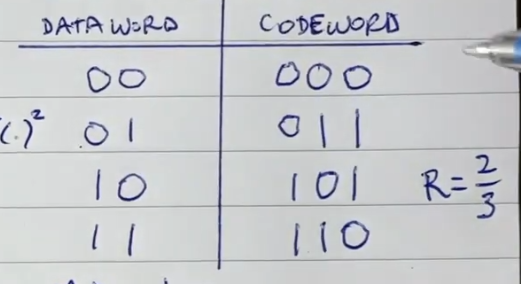 DATAWORD CODEWORD
00 000
(.)² 01 011
10 101 R=2/3
11 110